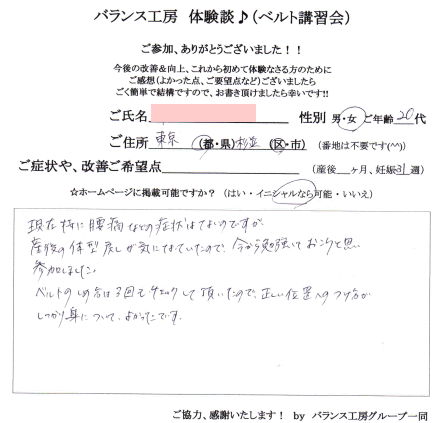 バランス工房　体験談♪（ベルト講習会）
ご参加、ありがとうございました！！
今後の改善＆向上、これから初めて体験なさる方のために
ご感想（よかった点、ご要望点など）ございましたら
ごく簡単で結構ですので、お書き頂けましたら幸いです!!
ご氏名　性別　男・女　ご年齢　20代
ご住所　東京（都・県）杉並（区・市）（番地は不要です(^^)）
ご症状や、改善ご希望点（産後　ヶ月、妊娠31週）
☆ホームページに掲載可能ですか？（はい・イニシャルなら可能・いいえ）
現在特に腰痛などの症状はないのですが、
産後の体型戻しが気になっていたので、今から勉強しておこうと思い
参加しました。
ベルトのしめ方は3回もチェックして頂いたので、正しい位置へのつけ方が
しっかり身について、よかったです。
ご協力、感謝いたします！　by　バランス工房グループ一同